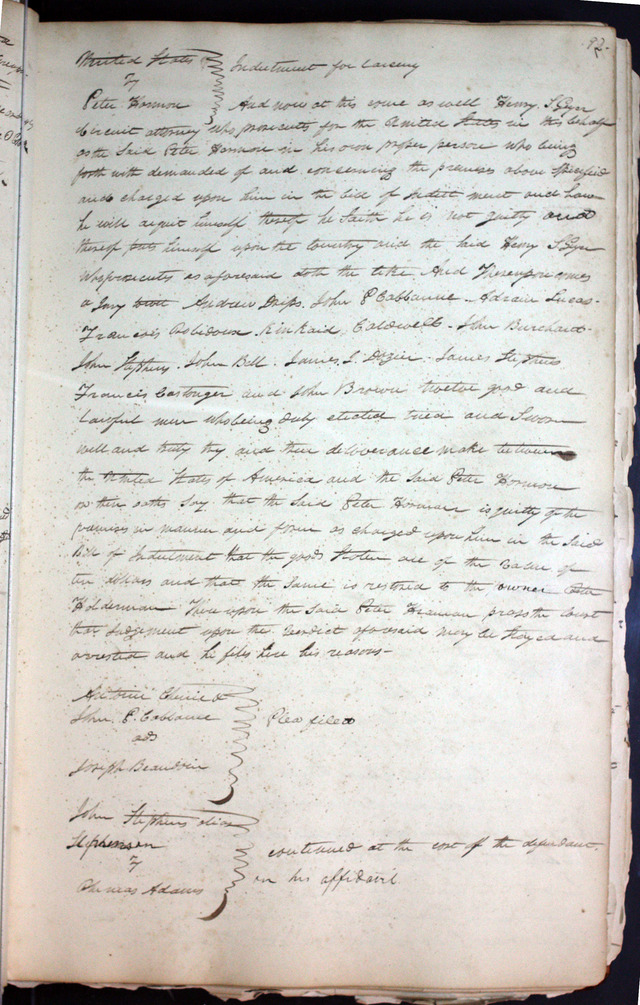 92.
United States
v Indictment for Larceny
Peter Harmon And now at this come as well Henry S Geyer
Circuit attorney who prosecutes for the United States in this behalf
as the Said Peter Harmon in his own proper person who being
forth with demanded of and concerning the premises above Specified
and charged upon him in the bill of Indict ment and how
he will acquit himself thereof he Saith he is not guilty and
thereof puts himself upon the Country and the Said Henry S Geyer
who prosecutes as aforesaid doth the like And Thereupon comes
a Jury Andrew Drips. John P Cabbanne. Adrain Lucas.
Francois Kinkaid, Caldwell. John Burchard.
John Stephens. John Bell. James S. Dozier. James Stephens
Francis and John Brown twelve good and
Lawful men who being duly elected tried and Sworn
well and truly try and true deliverance make between
the United States of America and the Said Peter Harmon
on their oaths Say that the Said Peter Harman is guilty of the
premises in manner and form as charged upon him in the Said
bill of Indictment that the goods Stolen are of the value of
ten dollars and that the Same is restored to the owner Peter
Holderman There upon the Said Peter Harman prays the Court
that Judgement upon the verdict aforesaid may be Stayed and
arrested and he files here his reasons-
Antoine Chenie &
John P. Cabbanne Plea filed
ads
Joseph Beaudoin
John Stephens alias
Stephenson continued at the cost of the defendant.
v on his affidavit
Thomas Adams